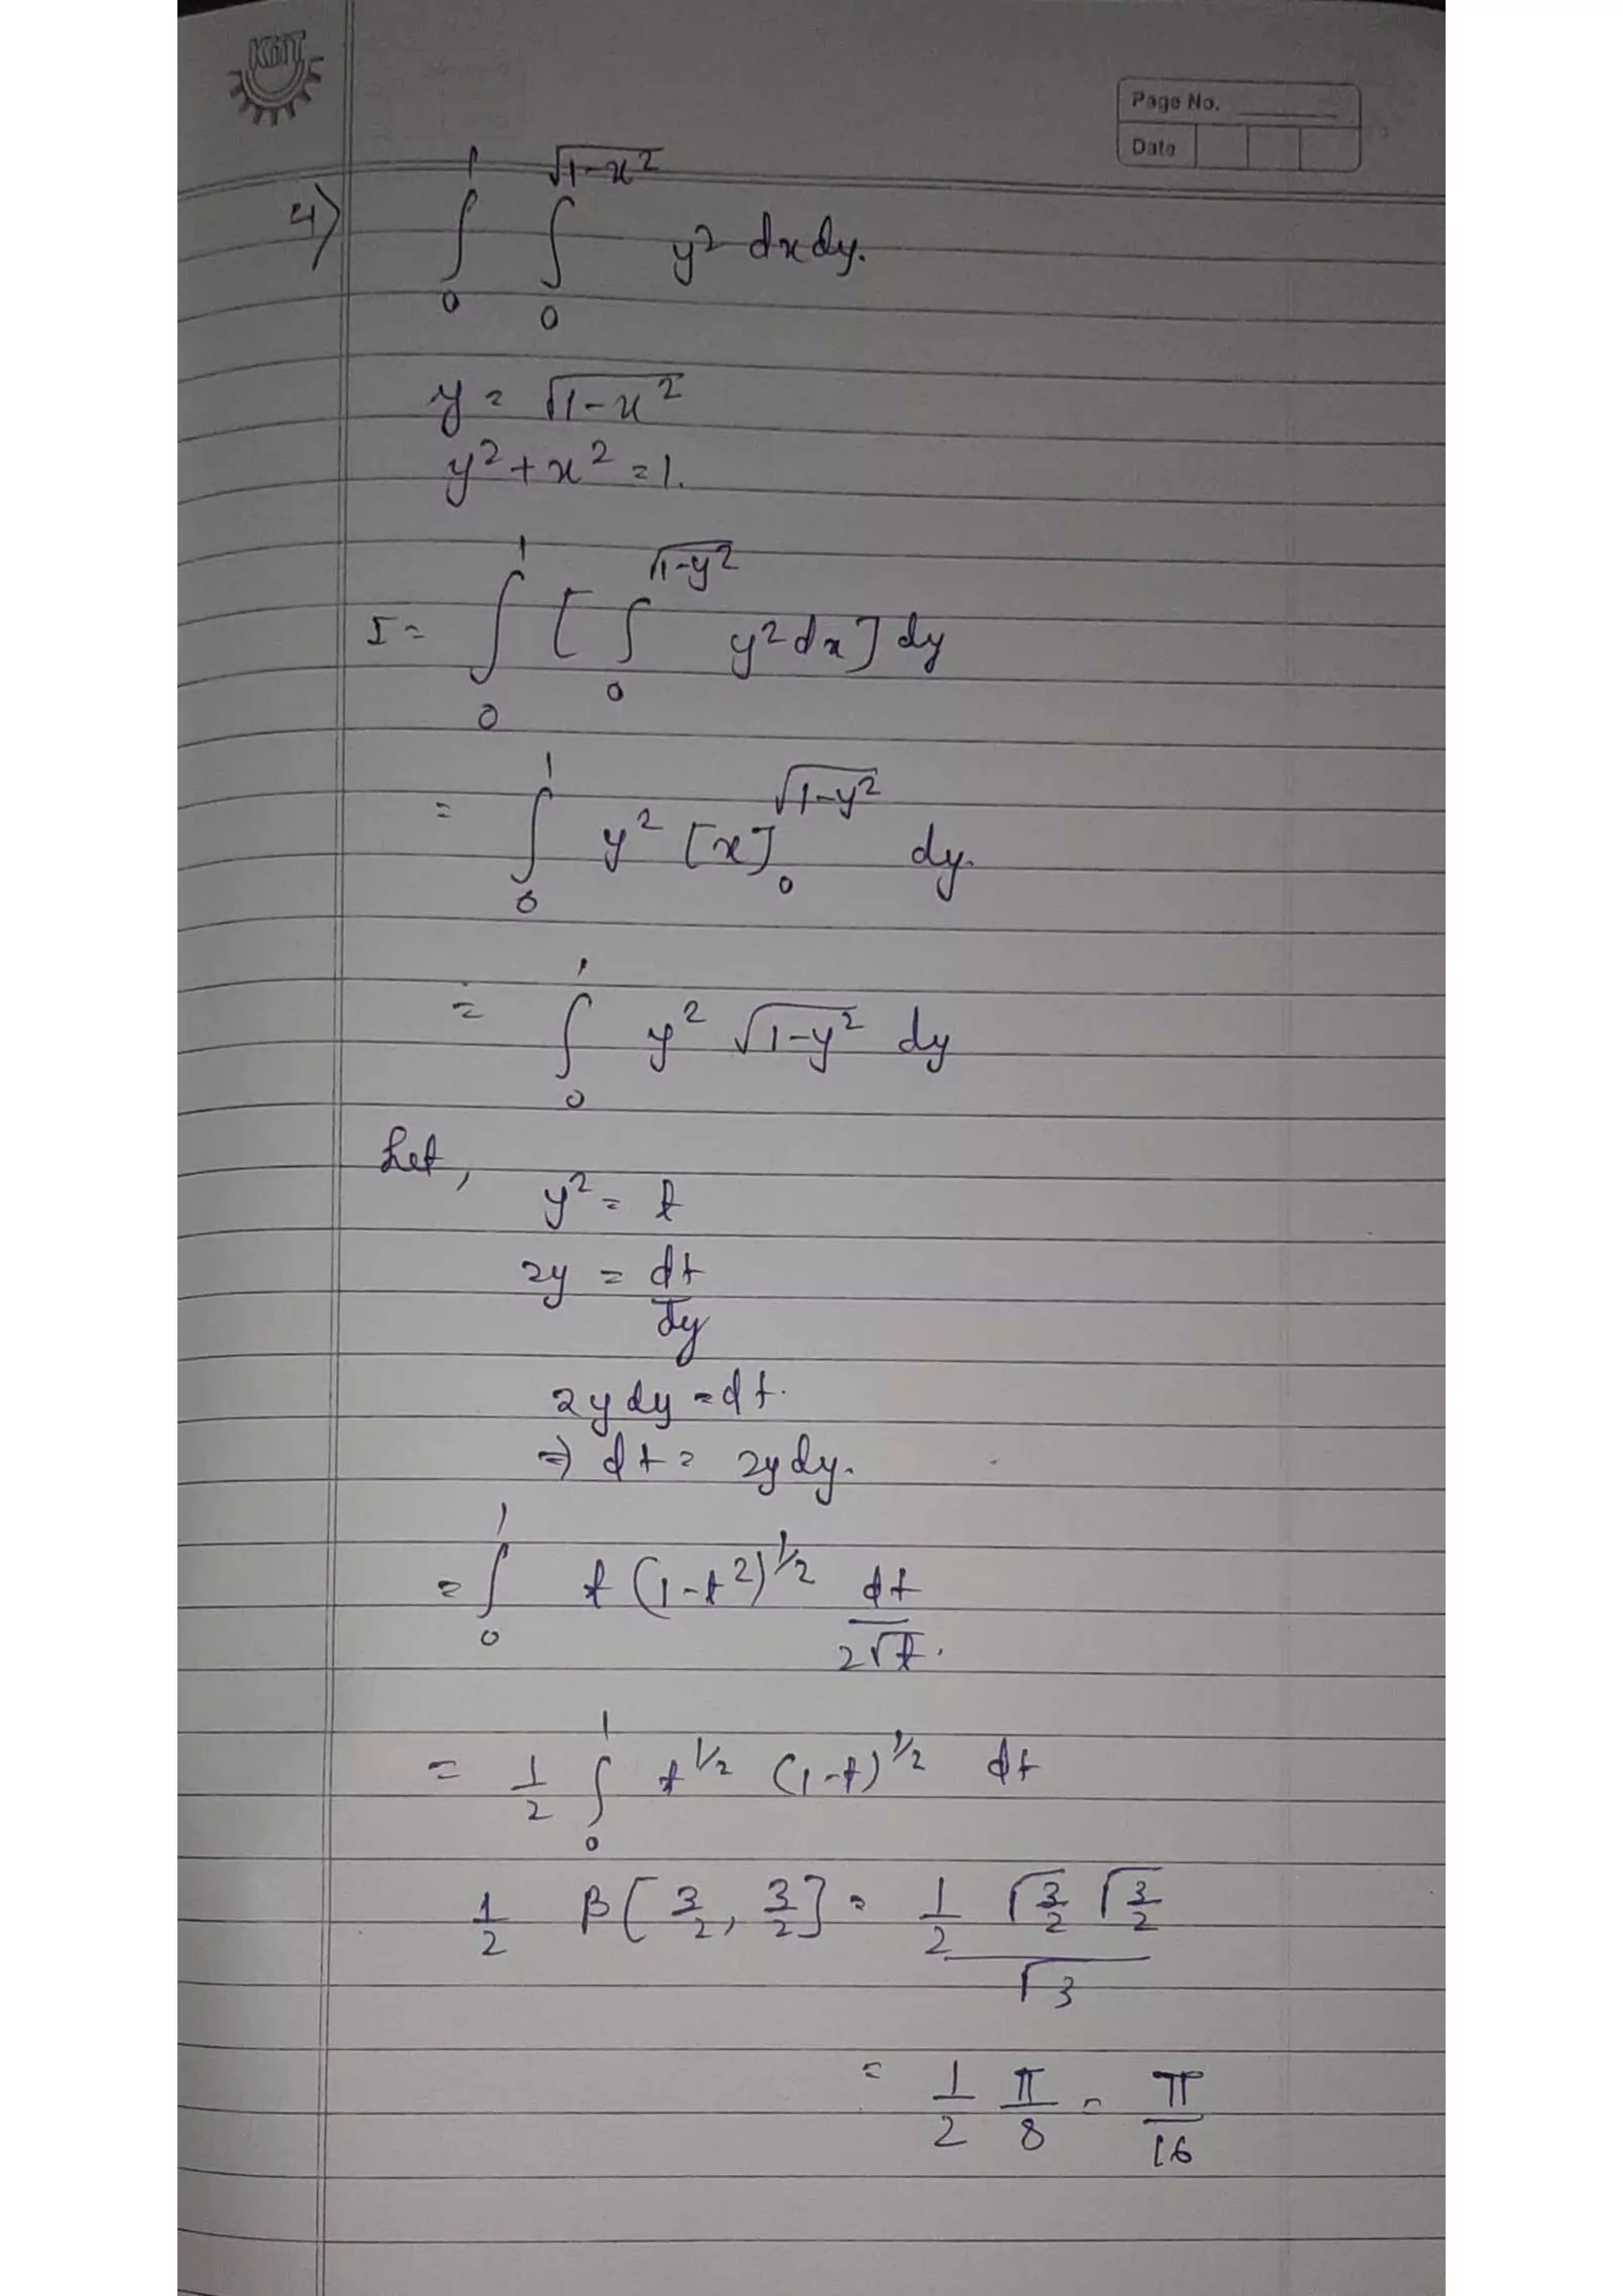 KIIT
Page No.
Date
4) ∫₀¹ ∫₀^√(1-x²) y² dx dy.
y = √(1-x²)
y² + x² = 1.
I = ∫₀¹ [∫₀^√(1-y²) y² dx] dy
= ∫₀¹ y² [x]₀^√(1-y²) dy.
= ∫₀¹ y² √(1-y²) dy
Let,
y² = t
2y = dt/dy
2y dy = dt.
⇒ dt = 2y dy.
= ∫₀¹ t (1-t²)^1/2 dt/2√t.
= 1/2 ∫₀¹ t^1/2 (1-t)^1/2 dt
1/2 β[3/2, 3/2] = 1/2 Γ3/2 Γ3/2 / Γ3
= 1/2 π/8 = π/16